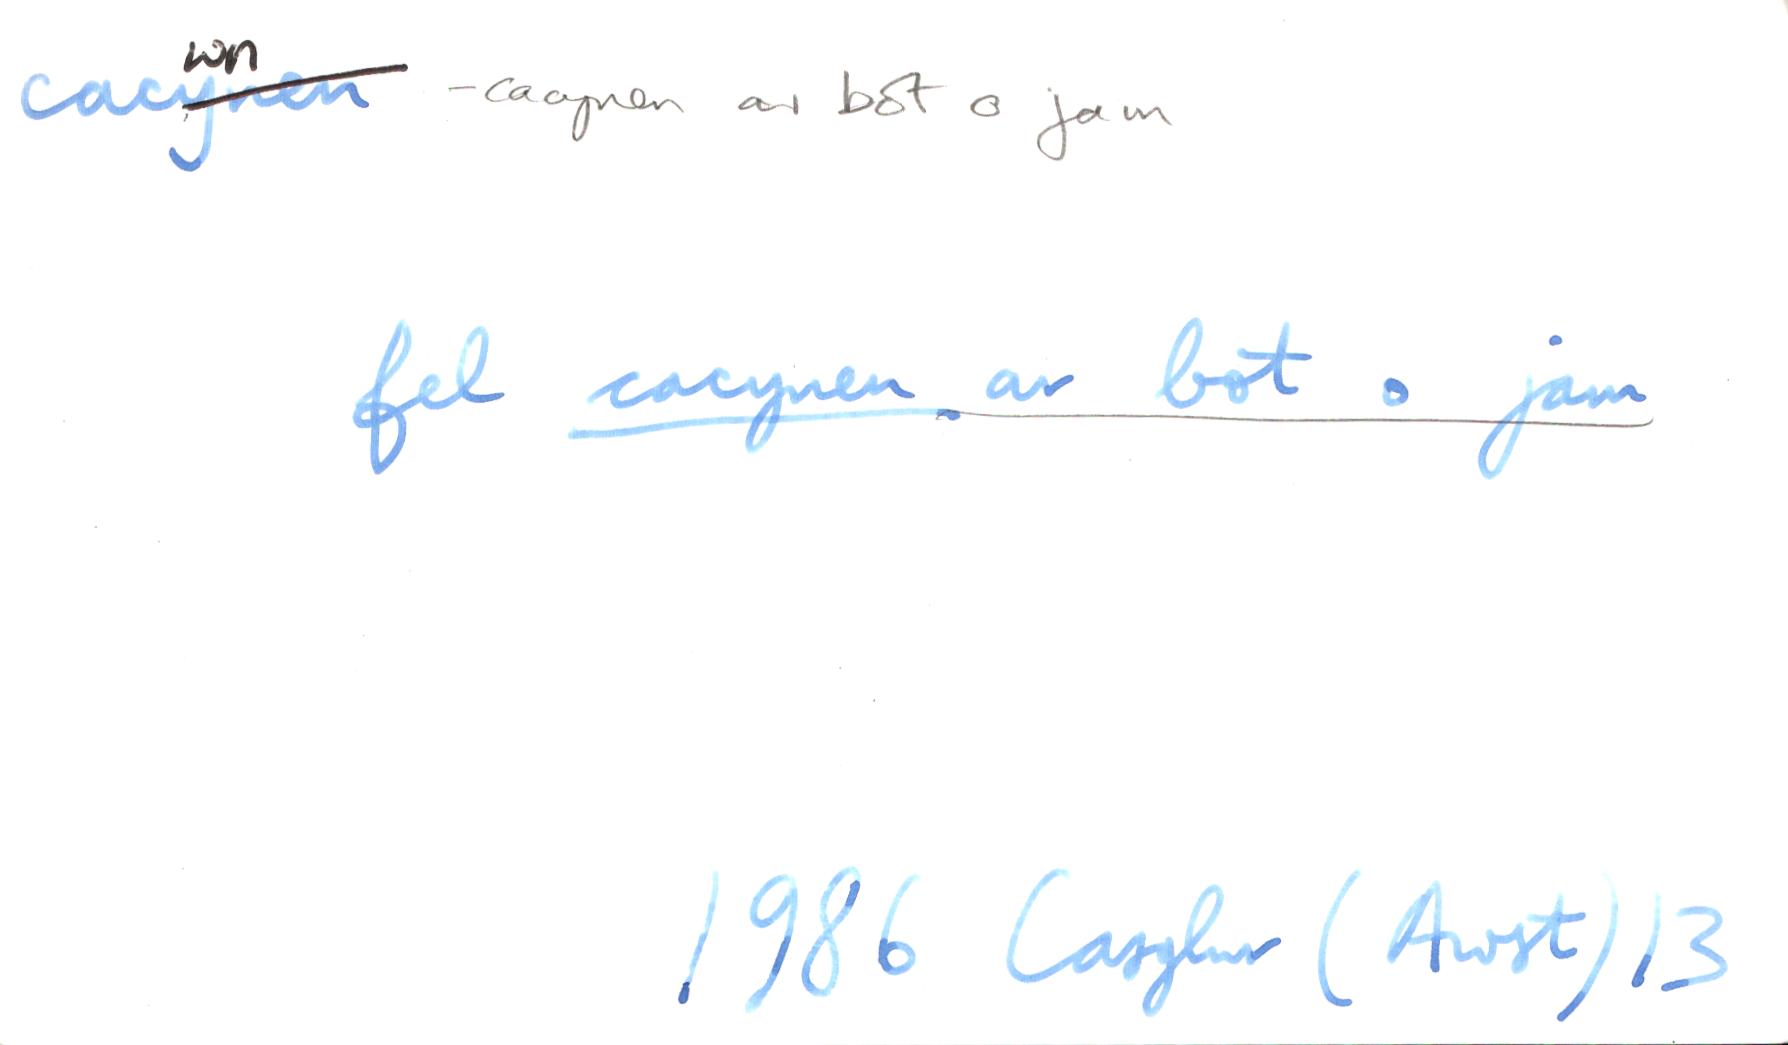 wn
cacynen - cacynen ar bot o jam
fel cacynen ar bot o jam
1986 Casglwr (Awst) 13